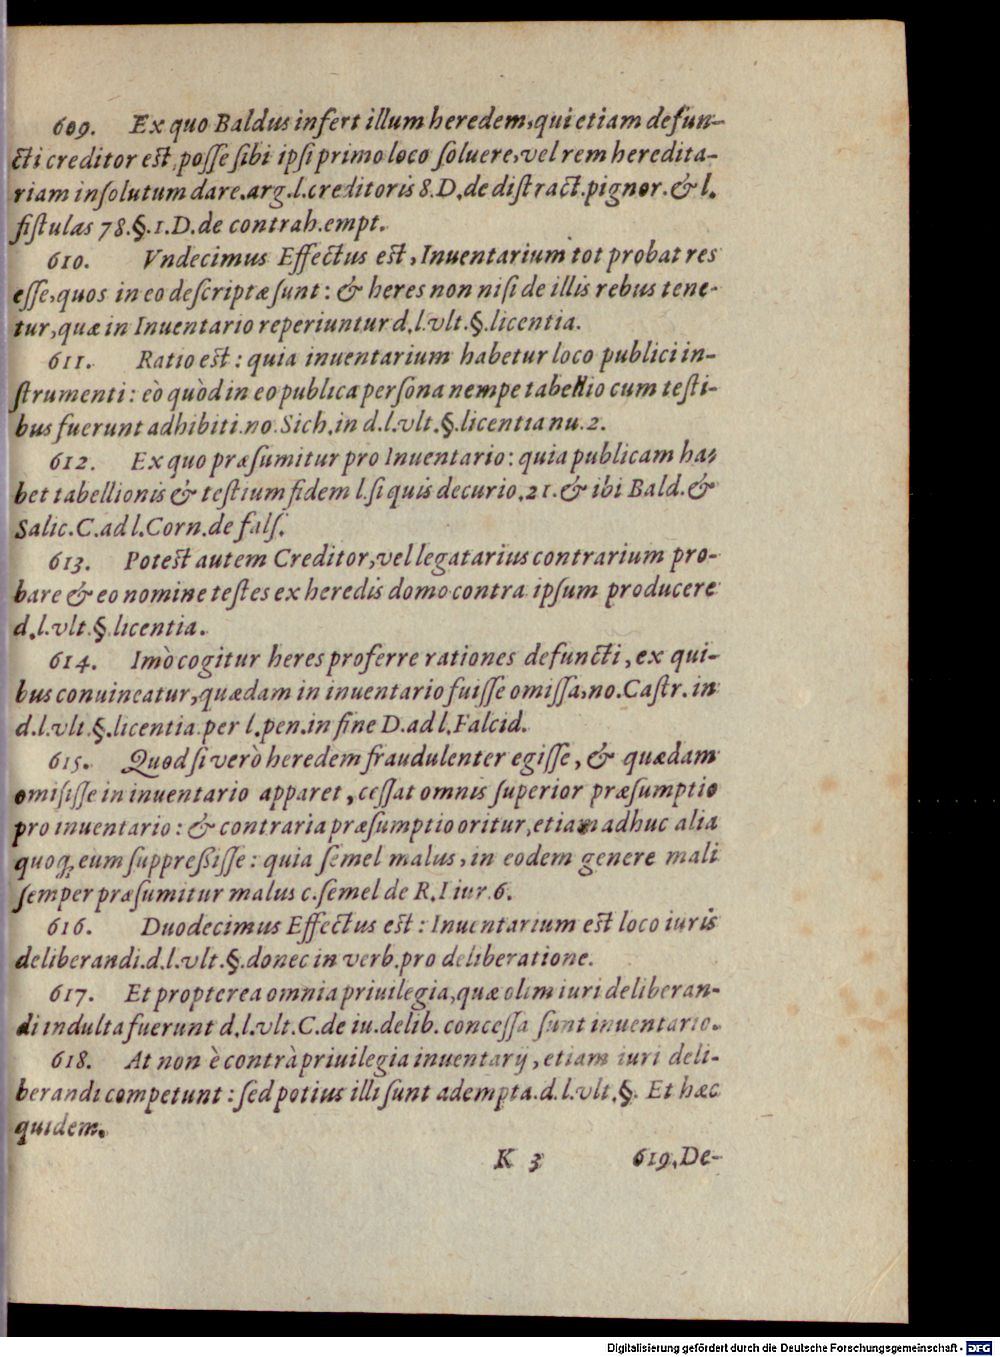 609. Ex quo Baldus infert illum heredem, qui etiam defun-
cti creditor est, posse sibi ipsi primo loco soluere, vel rem heredita-
riam insolutum dare. arg. l. creditoris 8. D. de distract. pignor. & l.
fistulas 78. §. 1. D. de contrah. empt.
610. Vndecimus Effectus est, Inuentarium tot probat res
esse, quos in eo descriptæ sunt: & heres non nisi de illis rebus tene-
tur, quæ in Inuentario reperiuntur d. l. vlt. §. licentia.
611. Ratio est: quia inuentarium habetur loco publici in-
strumenti: eò quòd in eo publica persona nempe tabellio cum testi-
bus fuerunt adhibiti. no. Sich. in d. l. vlt. §. licentia nu. 2.
612. Ex quo præsumitur pro Inuentario: quia publicam ha-
bet tabellionis & testium fidem l. si quis decurio. 21. & ibi Bald. &
Salic. C. ad l. Corn. de fals.
613. Potest autem Creditor, vel legatarius contrarium pro-
bare & eo nomine testes ex heredis domo contra ipsum producere
d. l. vlt. §. licentia.
614. Imò cogitur heres proferre rationes defuncti, ex qui-
bus conuineatur, quædam in inuentario fuisse omissa, no. Castr. in
d. l. vlt. §. licentia. per l. pen. in fine D. ad l. Falcid.
615. Quod si verò heredem fraudulenter egisse, & quædam
omisisse in inuentario apparet, cessat omnis superior præsumptio
pro inuentario: & contraria præsumptio oritur, etiam adhuc alia
quoq; eum suppreßisse: quia semel malus, in eodem genere mali
semper præsumitur malus c. semel de R. I iur. 6.
616. Duodecimus Effectus est: Inuentarium est loco iuris
deliberandi. d. l. vlt. §. donec in verb. pro deliberatione.
617. Et propterea omnia priuilegia, quæ olim iuri deliberan-
di indulta fuerunt d. l. vlt. C. de iu. delib. concessa sunt inuentario.
618. At non è contrà priuilegia inuentarij, etiam iuri deli-
berandi competunt: sed potius illi sunt adempta. d. l. vlt. §. Et hæc
quidem.
K 3 619. De-
Digitalisierung gefördert durch die Deutsche Forschungsgemeinschaft - DFG